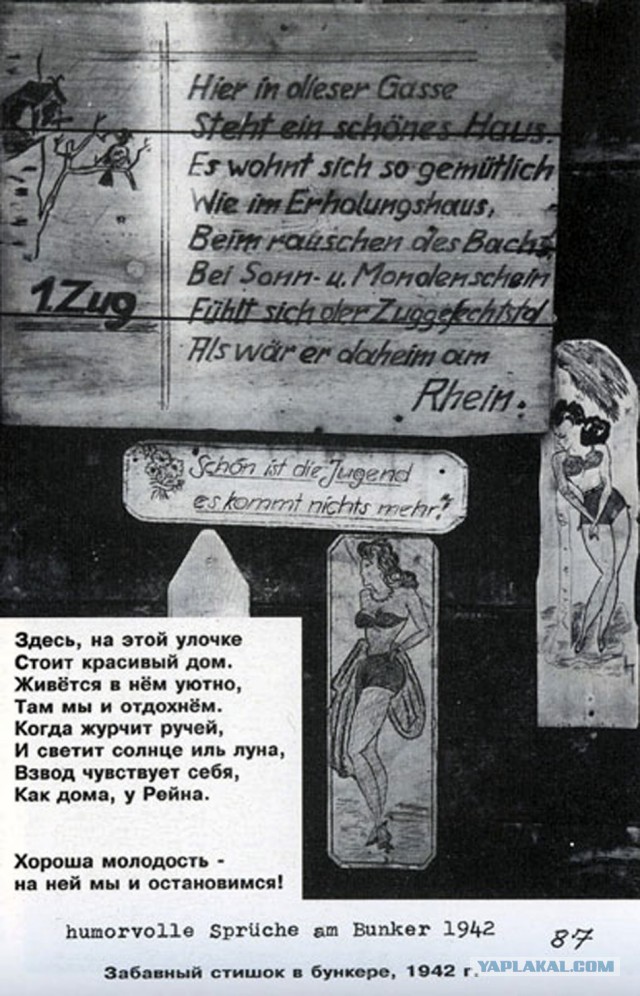 Hier in dieser Gasse
Steht ein schönes Haus.
Es wohnt sich so gemütlich
Wie im Erholungshaus,
Beim rauschen des Bachs,
Bei Sonn- u. Mondenschein
Fühlt sich der Zuggefechtstd.
Als wär er daheim am
Rhein.
1.Zug
Schön ist die Jugend
es kommt nichts mehr!
Здесь, на этой улочке
Стоит красивый дом.
Живётся в нём уютно,
Там мы и отдохнём.
Когда журчит ручей,
И светит солнце иль луна,
Взвод чувствует себя,
Как дома, у Рейна.
Хороша молодость -
на ней мы и остановимся!
humorvolle Sprüche am Bunker 1942
87
Забавный стишок в бункере, 1942 г.
YAPLAKAL.COM